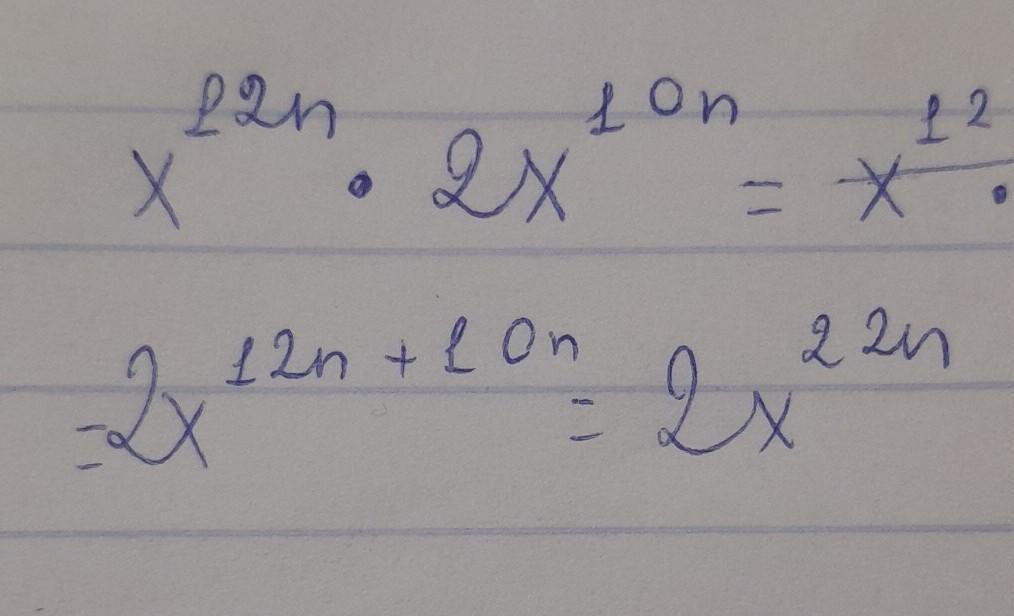 x^{12n} · 2x^{10n} = x^{12} ·
= 2x^{12n + 10n} = 2x^{22n}